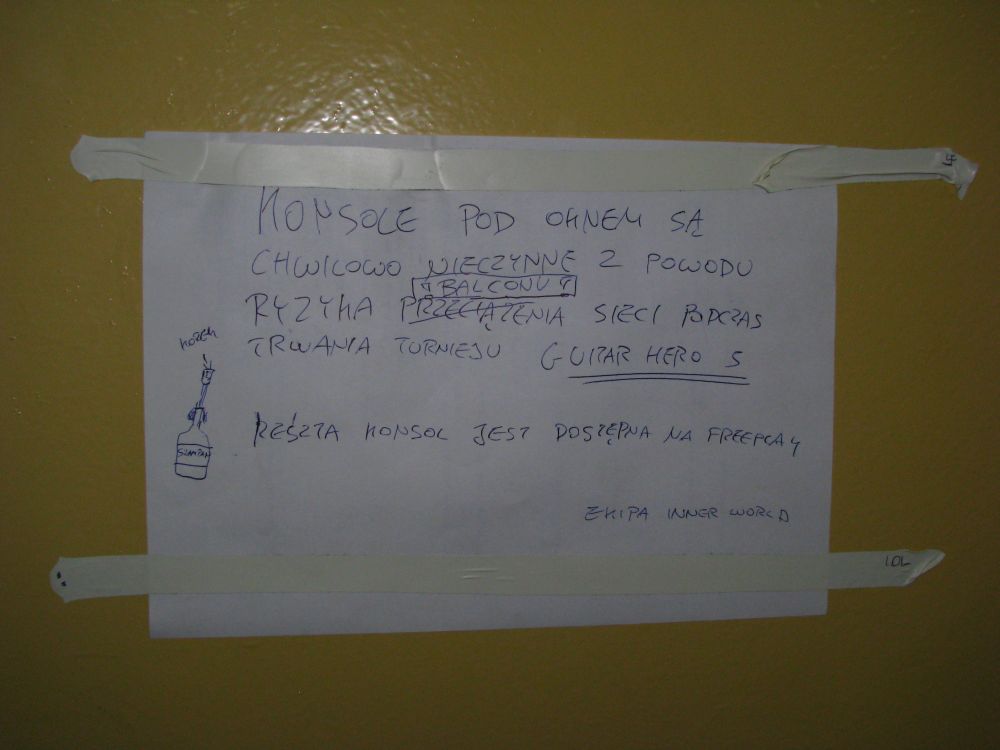 KONSOLE POD OKNEM SĄ
CHWILOWO NIECZYNNE Z POWODU
BALCONU
RYZYKA PRZECIĄŻENIA SIECI PODCZAS
TRWANIA TURNIEJU GUITAR HERO 5
KOREK
SZAMPAN
RESZTA KONSOL JEST DOSTĘPNA NA FREEPLAY
EKIPA INNER WORLD
LOL